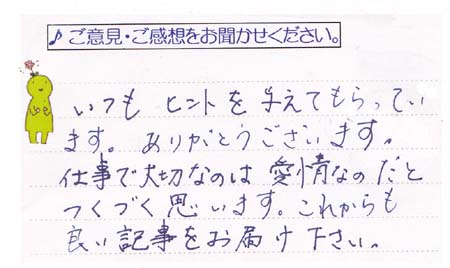 ♪ご意見・ご感想をお聞かせください。
いつも ヒントを与えてもらってい
ます。ありがとうございます。
仕事で大切なのは 愛情なのだと
つくづく思います。これからも
良い記事をお届け下さい。